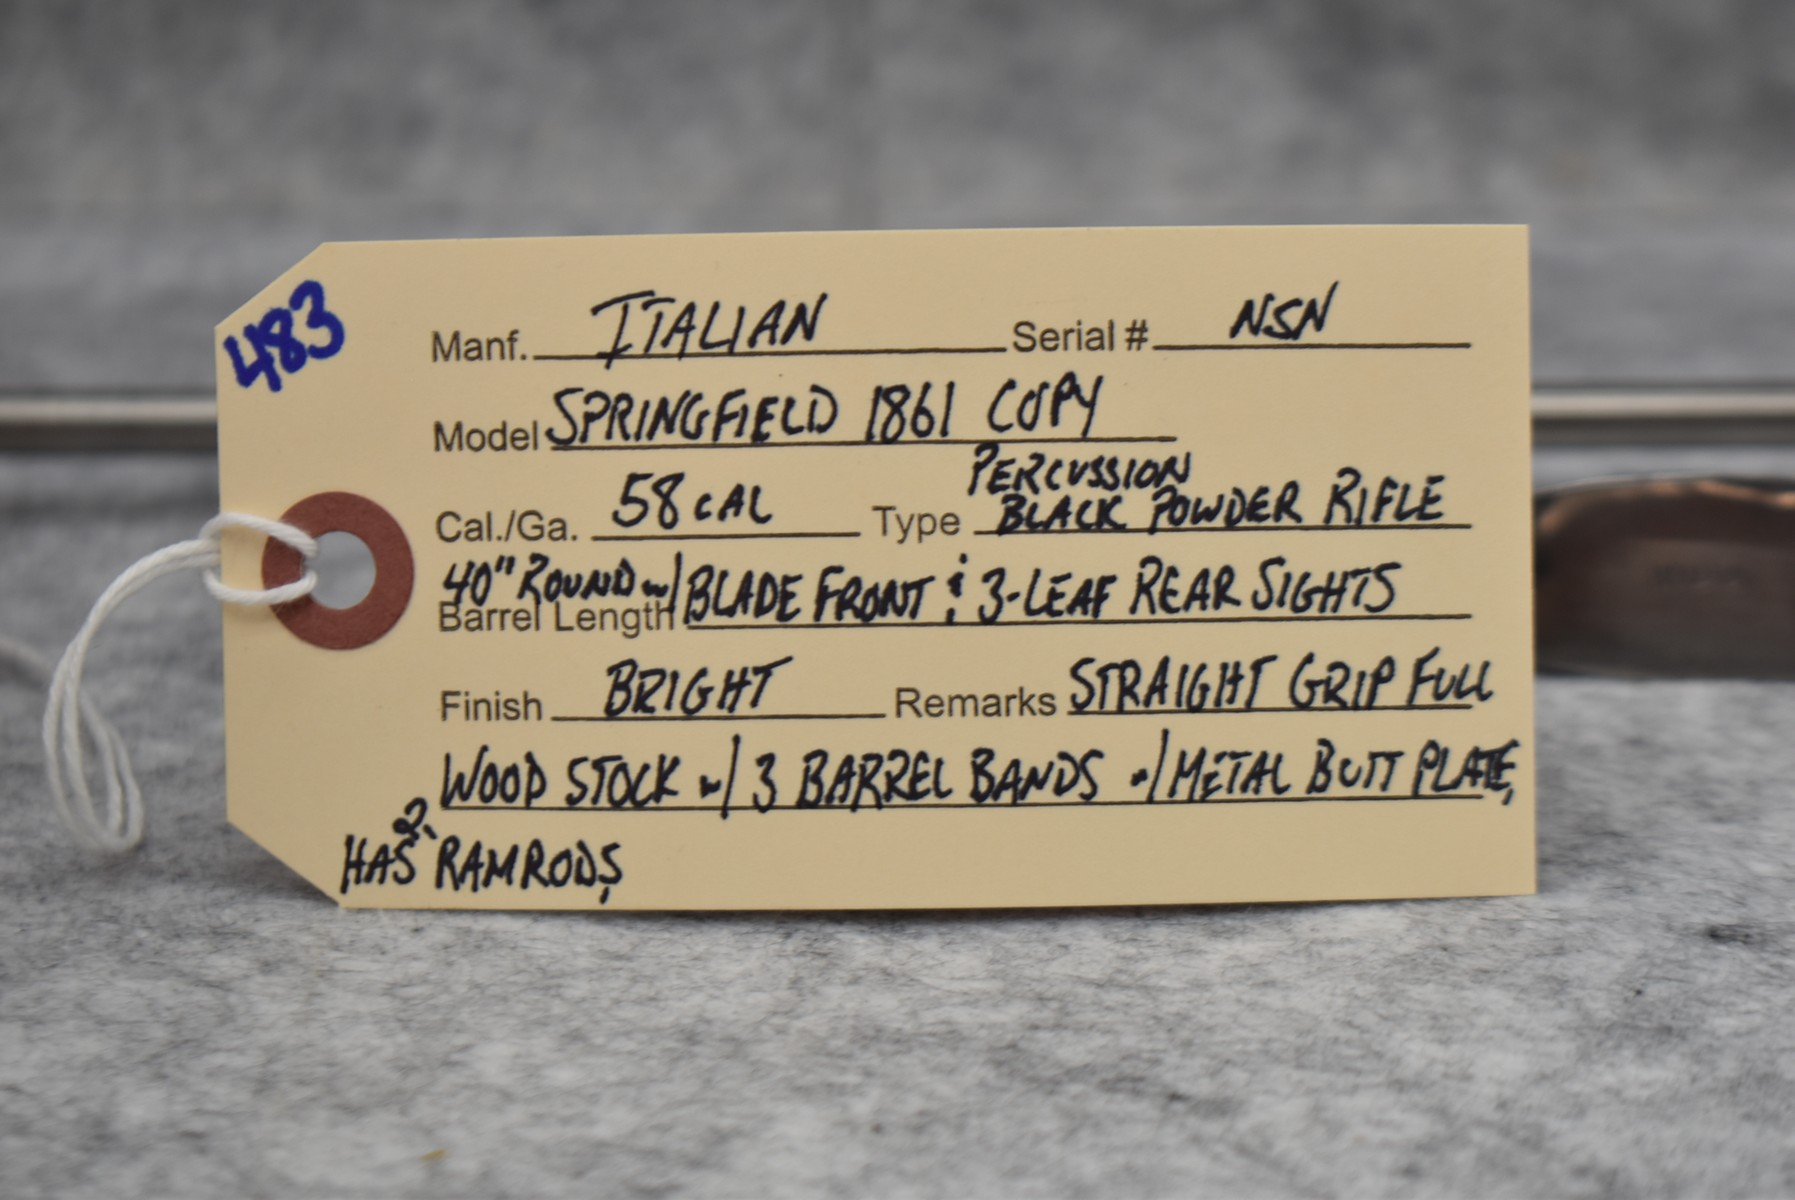 483
Manf. ITALIAN Serial # NSN
Model SPRINGFIELD 1861 COPY
Cal./Ga. 58 CAL Type PERCUSSION BLACK POWDER RIFLE
Barrel Length 40" ROUND w/ BLADE FRONT & 3-LEAF REAR SIGHTS
Finish BRIGHT Remarks STRAIGHT GRIP FULL
WOOD STOCK w/ 3 BARREL BANDS w/ METAL BUTT PLATE,
HAS 2 RAMRODS,